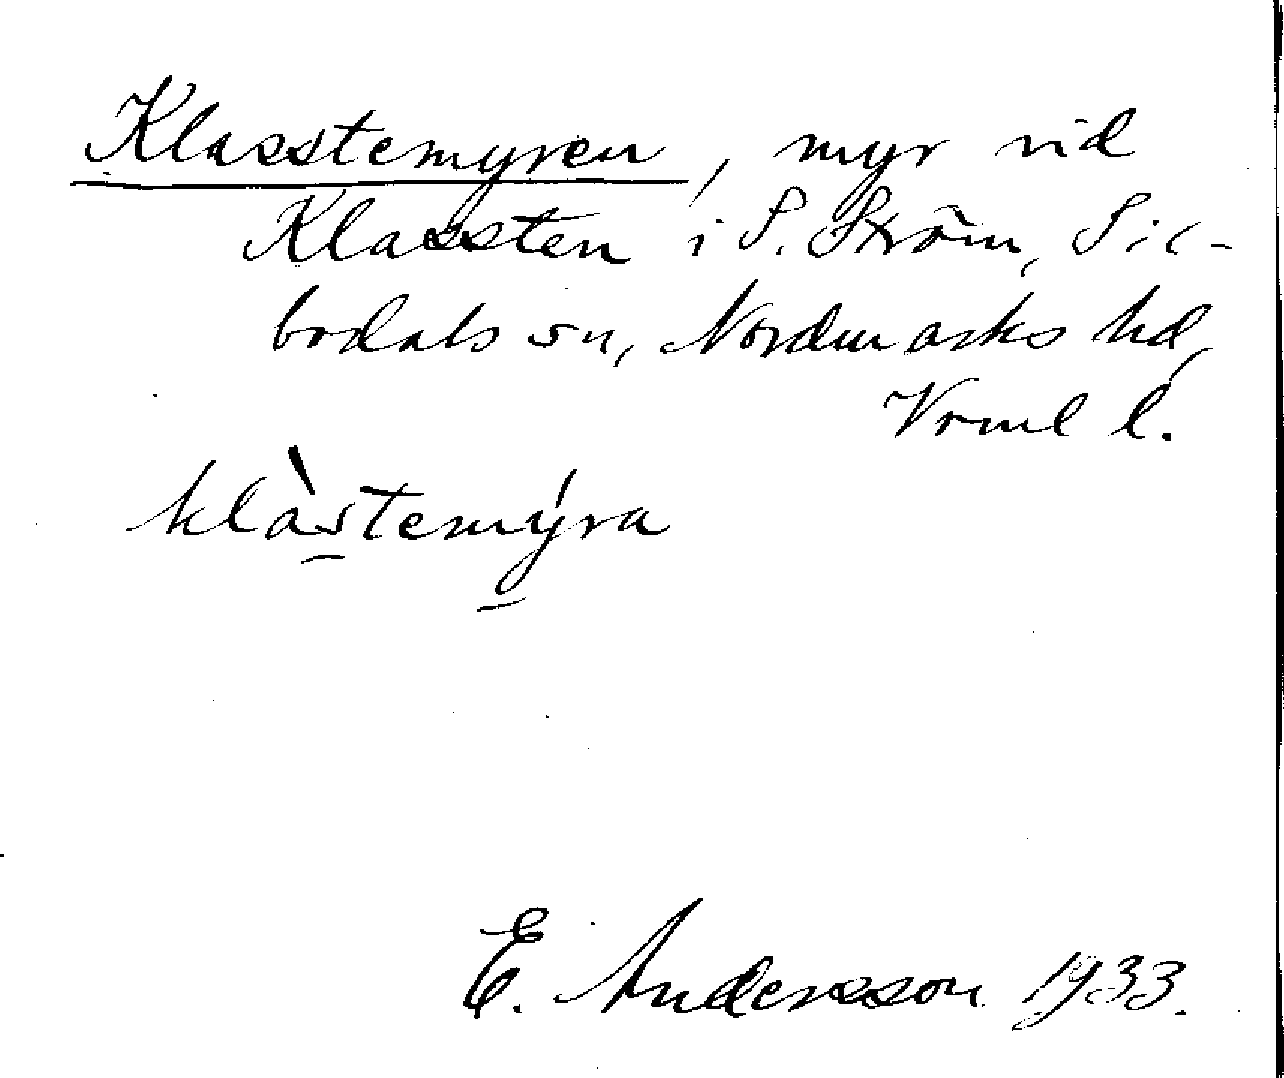 Klasstemyren, myr vid
Klassten i S. Ström, Sil-
bodals sn, Nordmarks hd,
Vrml l.
klàstemýra
E. Andersson 1933.